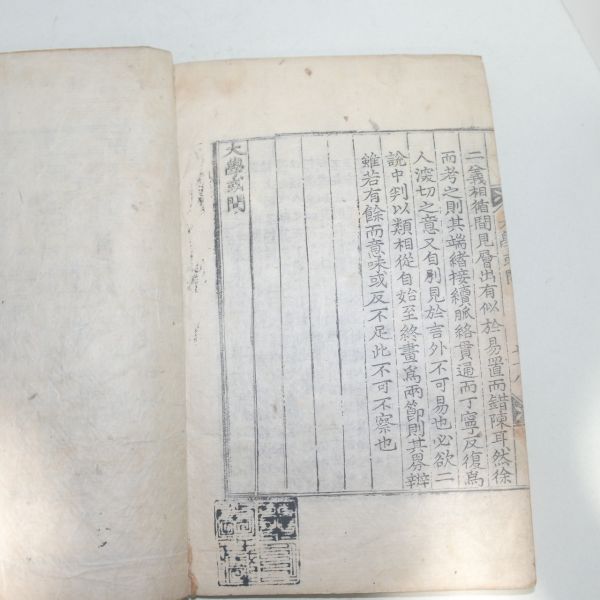 二義相循間見層出有似於易置而錯陳耳然徐
而考之則其端緒接續脈絡貫通而丁寧反復爲
人深切之意又自別見於言外不可易也必欲二
說中判以類相從自始至終畫爲兩節則其界辨
雖若有餘而意味或反不足此不可不察也
大學或問